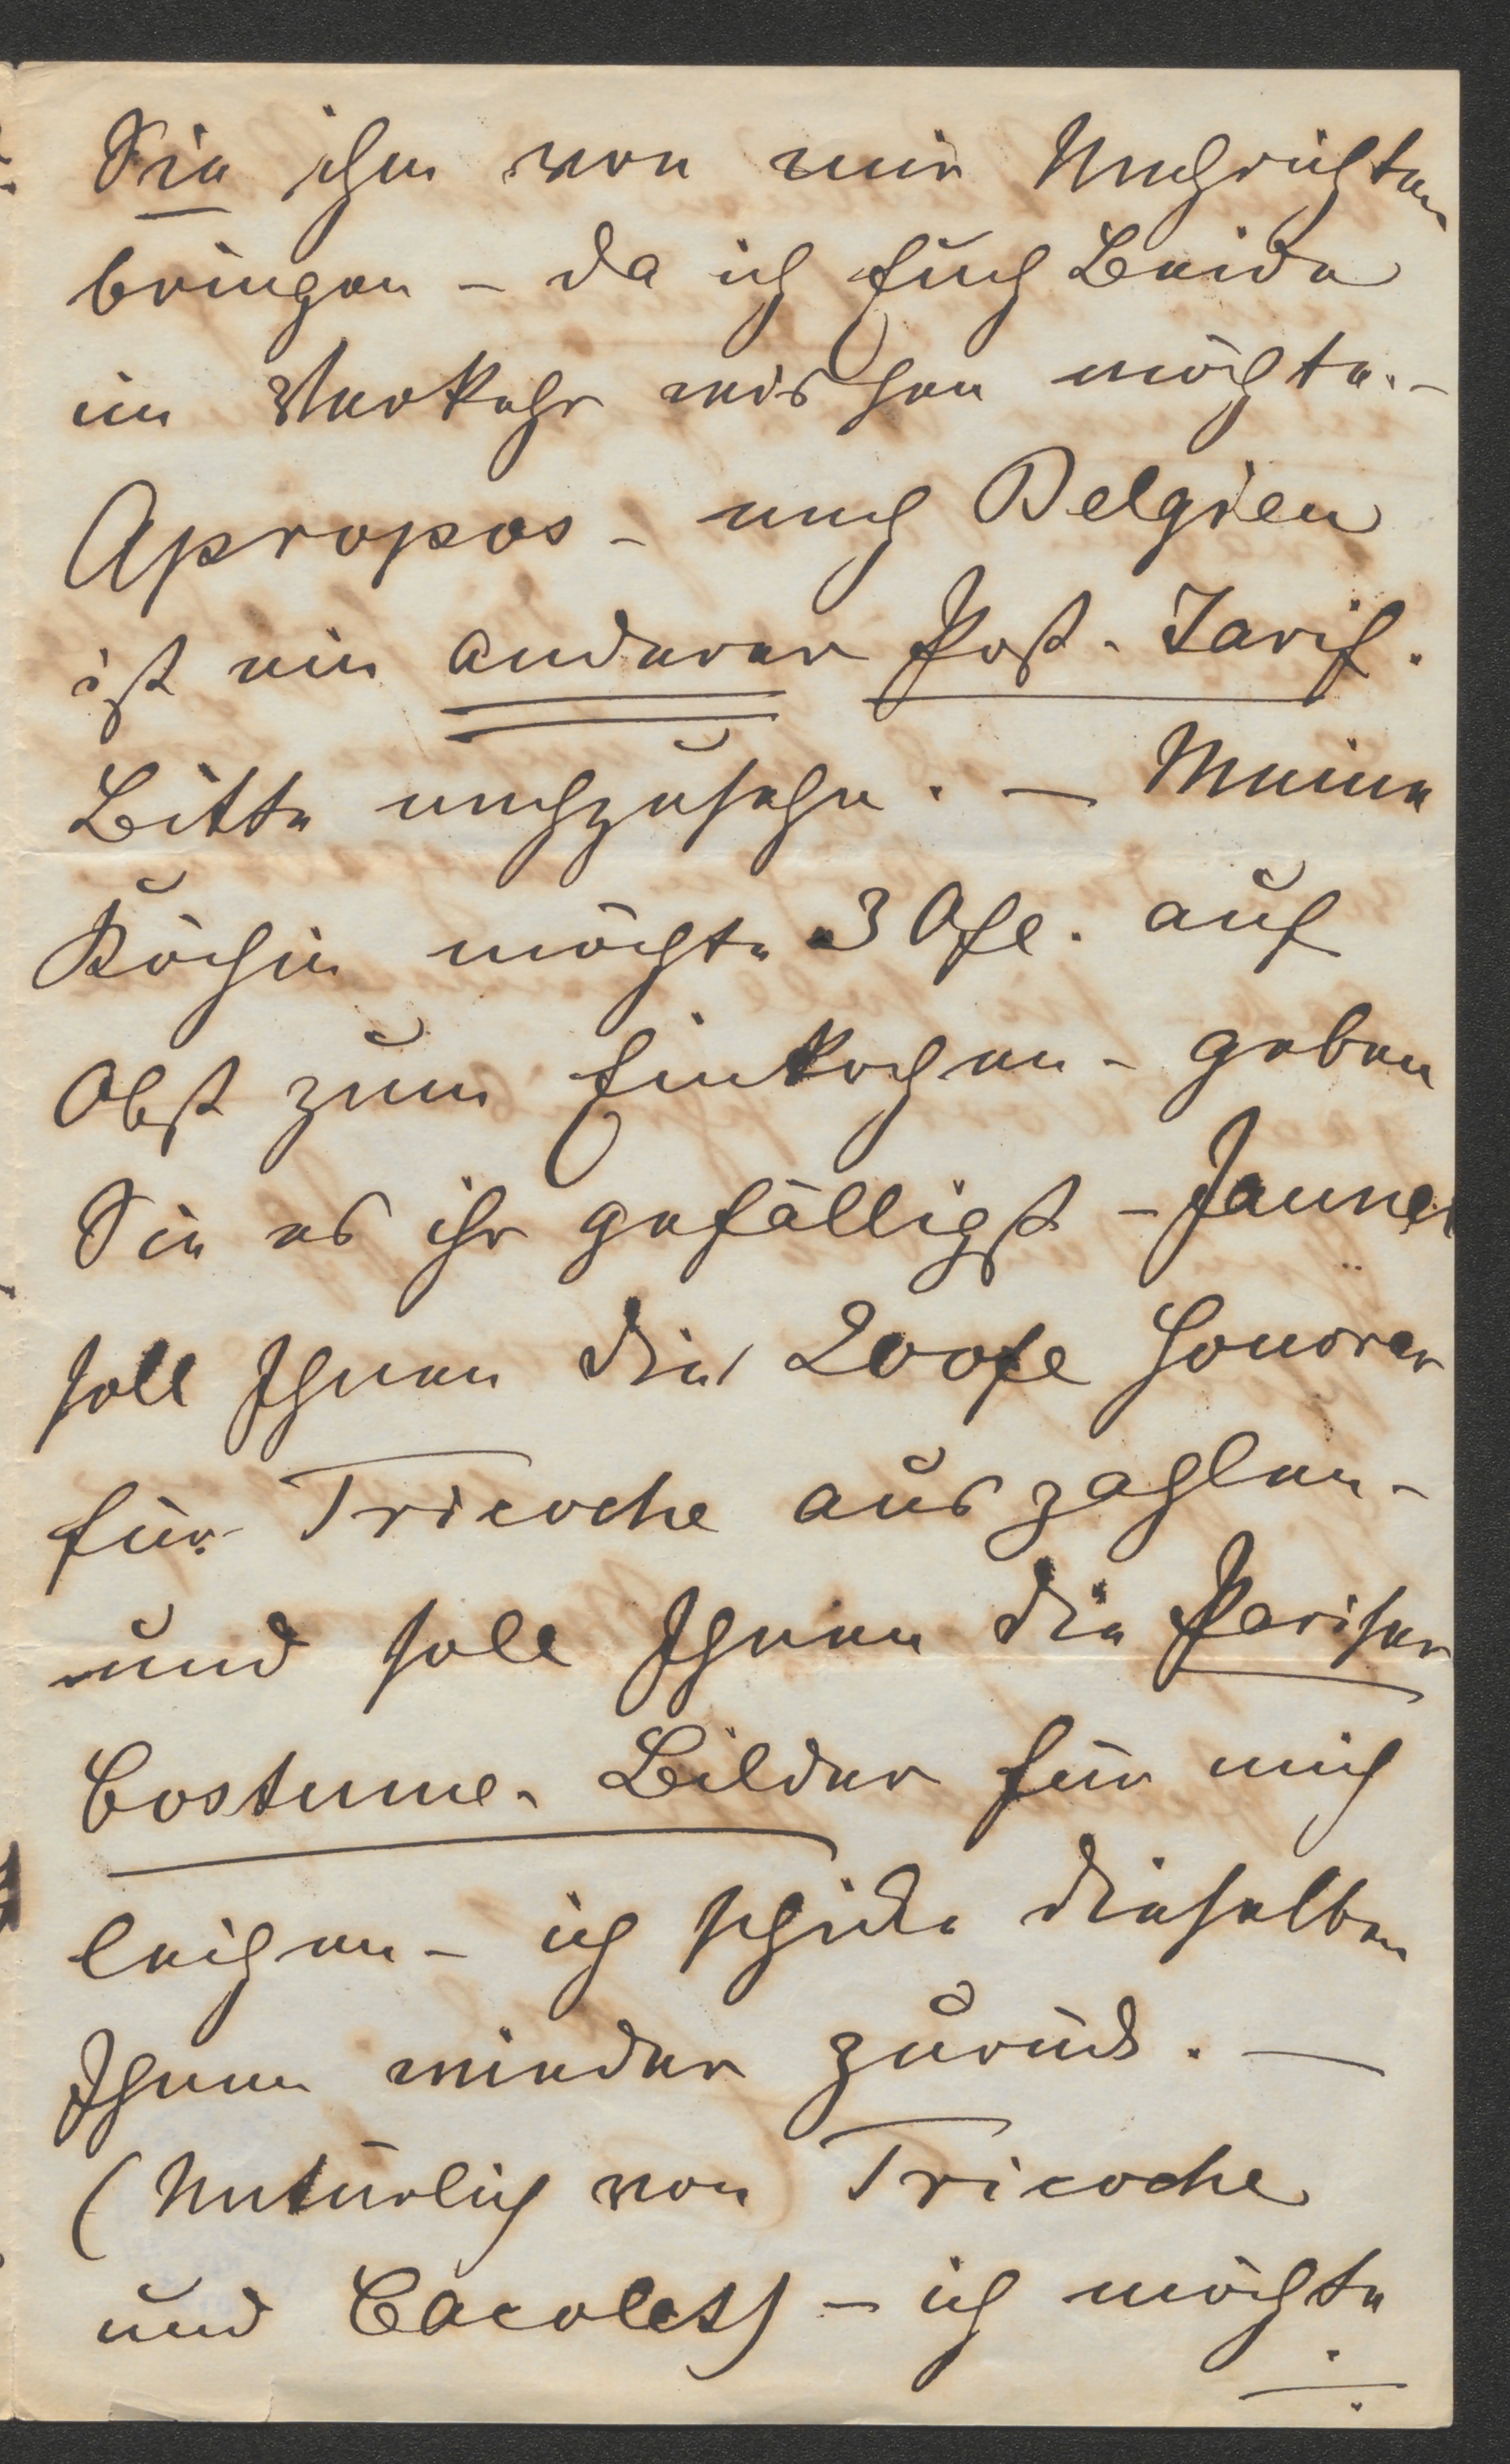 Sie ihm von mir Nachrichten
bringen – da ich Euch Beide
im Verkehr wissen möchte. –
Apropos – nach Belgien
ist ein anderer Post-Tarif.
Bitte nachzusehn. – Meine
Köchin möchte 30 fl. auf
Obst zum Einkochen – geben
Sie es ihr gefälligst – Jauner
soll Ihnen die 200 fl Honorar
für Tricoche auszahlen –
und soll Ihnen die Pariser
Costume-Bilder für mich
leihen – ich schicke dieselben
Ihnen wieder zurück. —
(Natürlich von Tricoche
und Cacolet) – ich möchte
./.